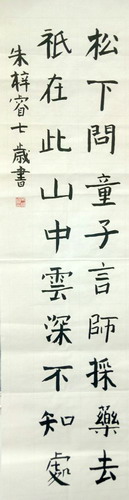 松下問童子言師採藥去
祇在此山中雲深不知處
朱梓睿七歲書